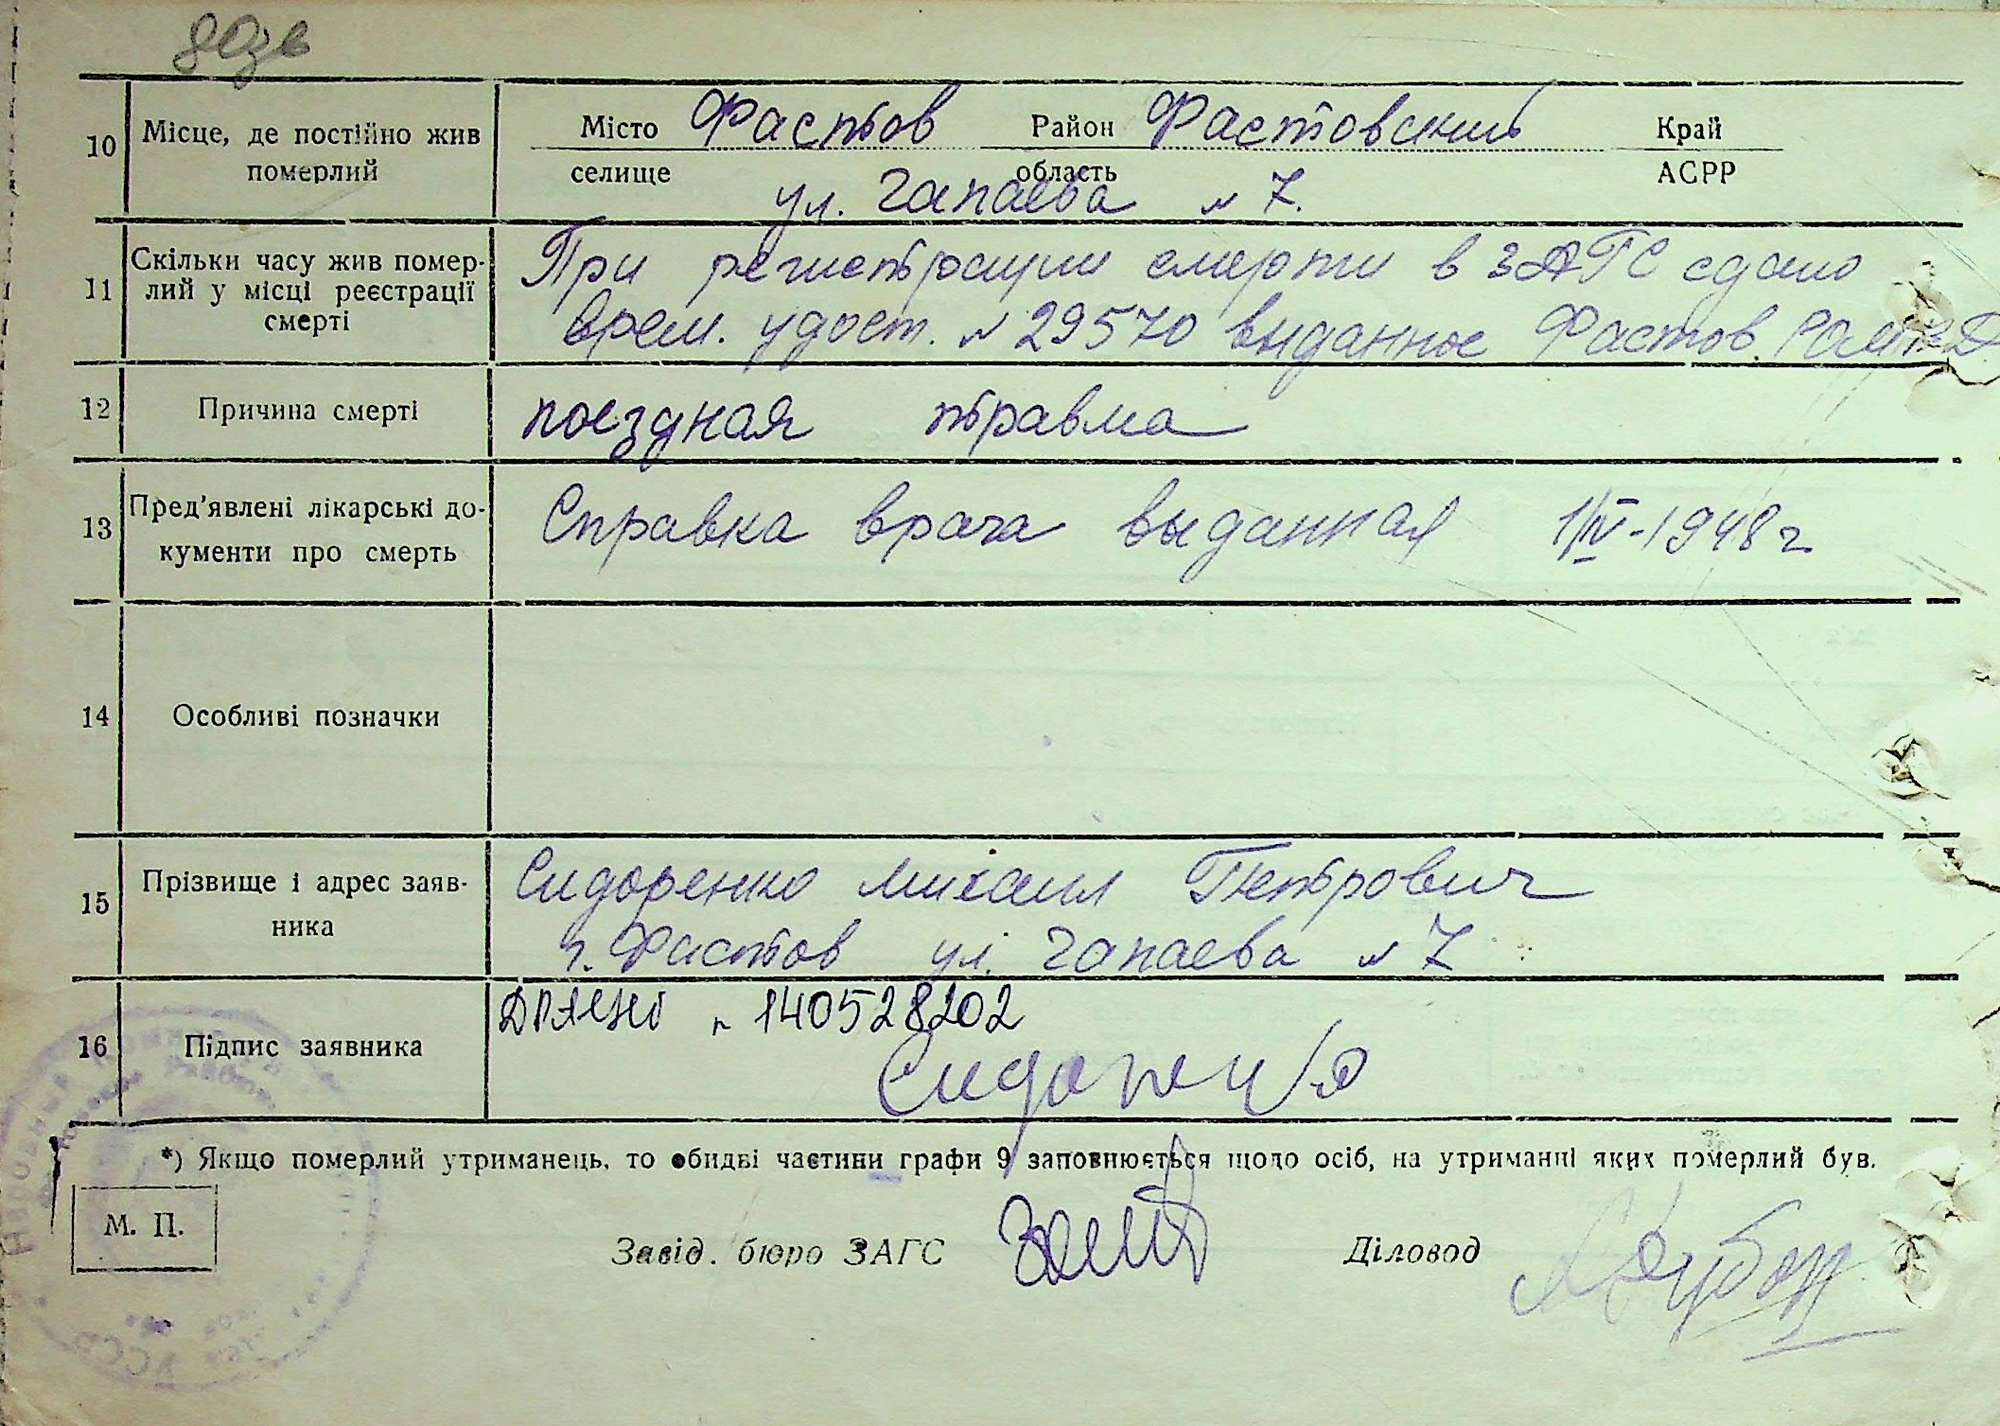 дозв
10 Місце, де постійно жив померлий
Місто Фастов Район Фастовский Край
селище область АСРР
ул. Чапаева № 7.
11 Скільки часу жив помер-
лий у місці реєстрації
смерті
При регистрации смерти в ЗАГС сдано
врем. удост. № 29570 выданное Фастов.
12 Причина смерті
поездная травма
13 Пред'явлені лікарські до-
кументи про смерть
Справка врача выданная 1/IV-1948 г.
14 Особливі позначки
15 Прізвище і адрес заяв-
ника
Сидоренко Михаил Петрович
г. Фастов ул. Чапаева № 7
16 Підпис заявника
140528202
Сидоренко
*) Якщо померлий утриманець, то обидві частини графи 9 заповнюється щодо осіб, на утриманні яких померлий був.
М. П.
Завід. бюро ЗАГС
Діловод